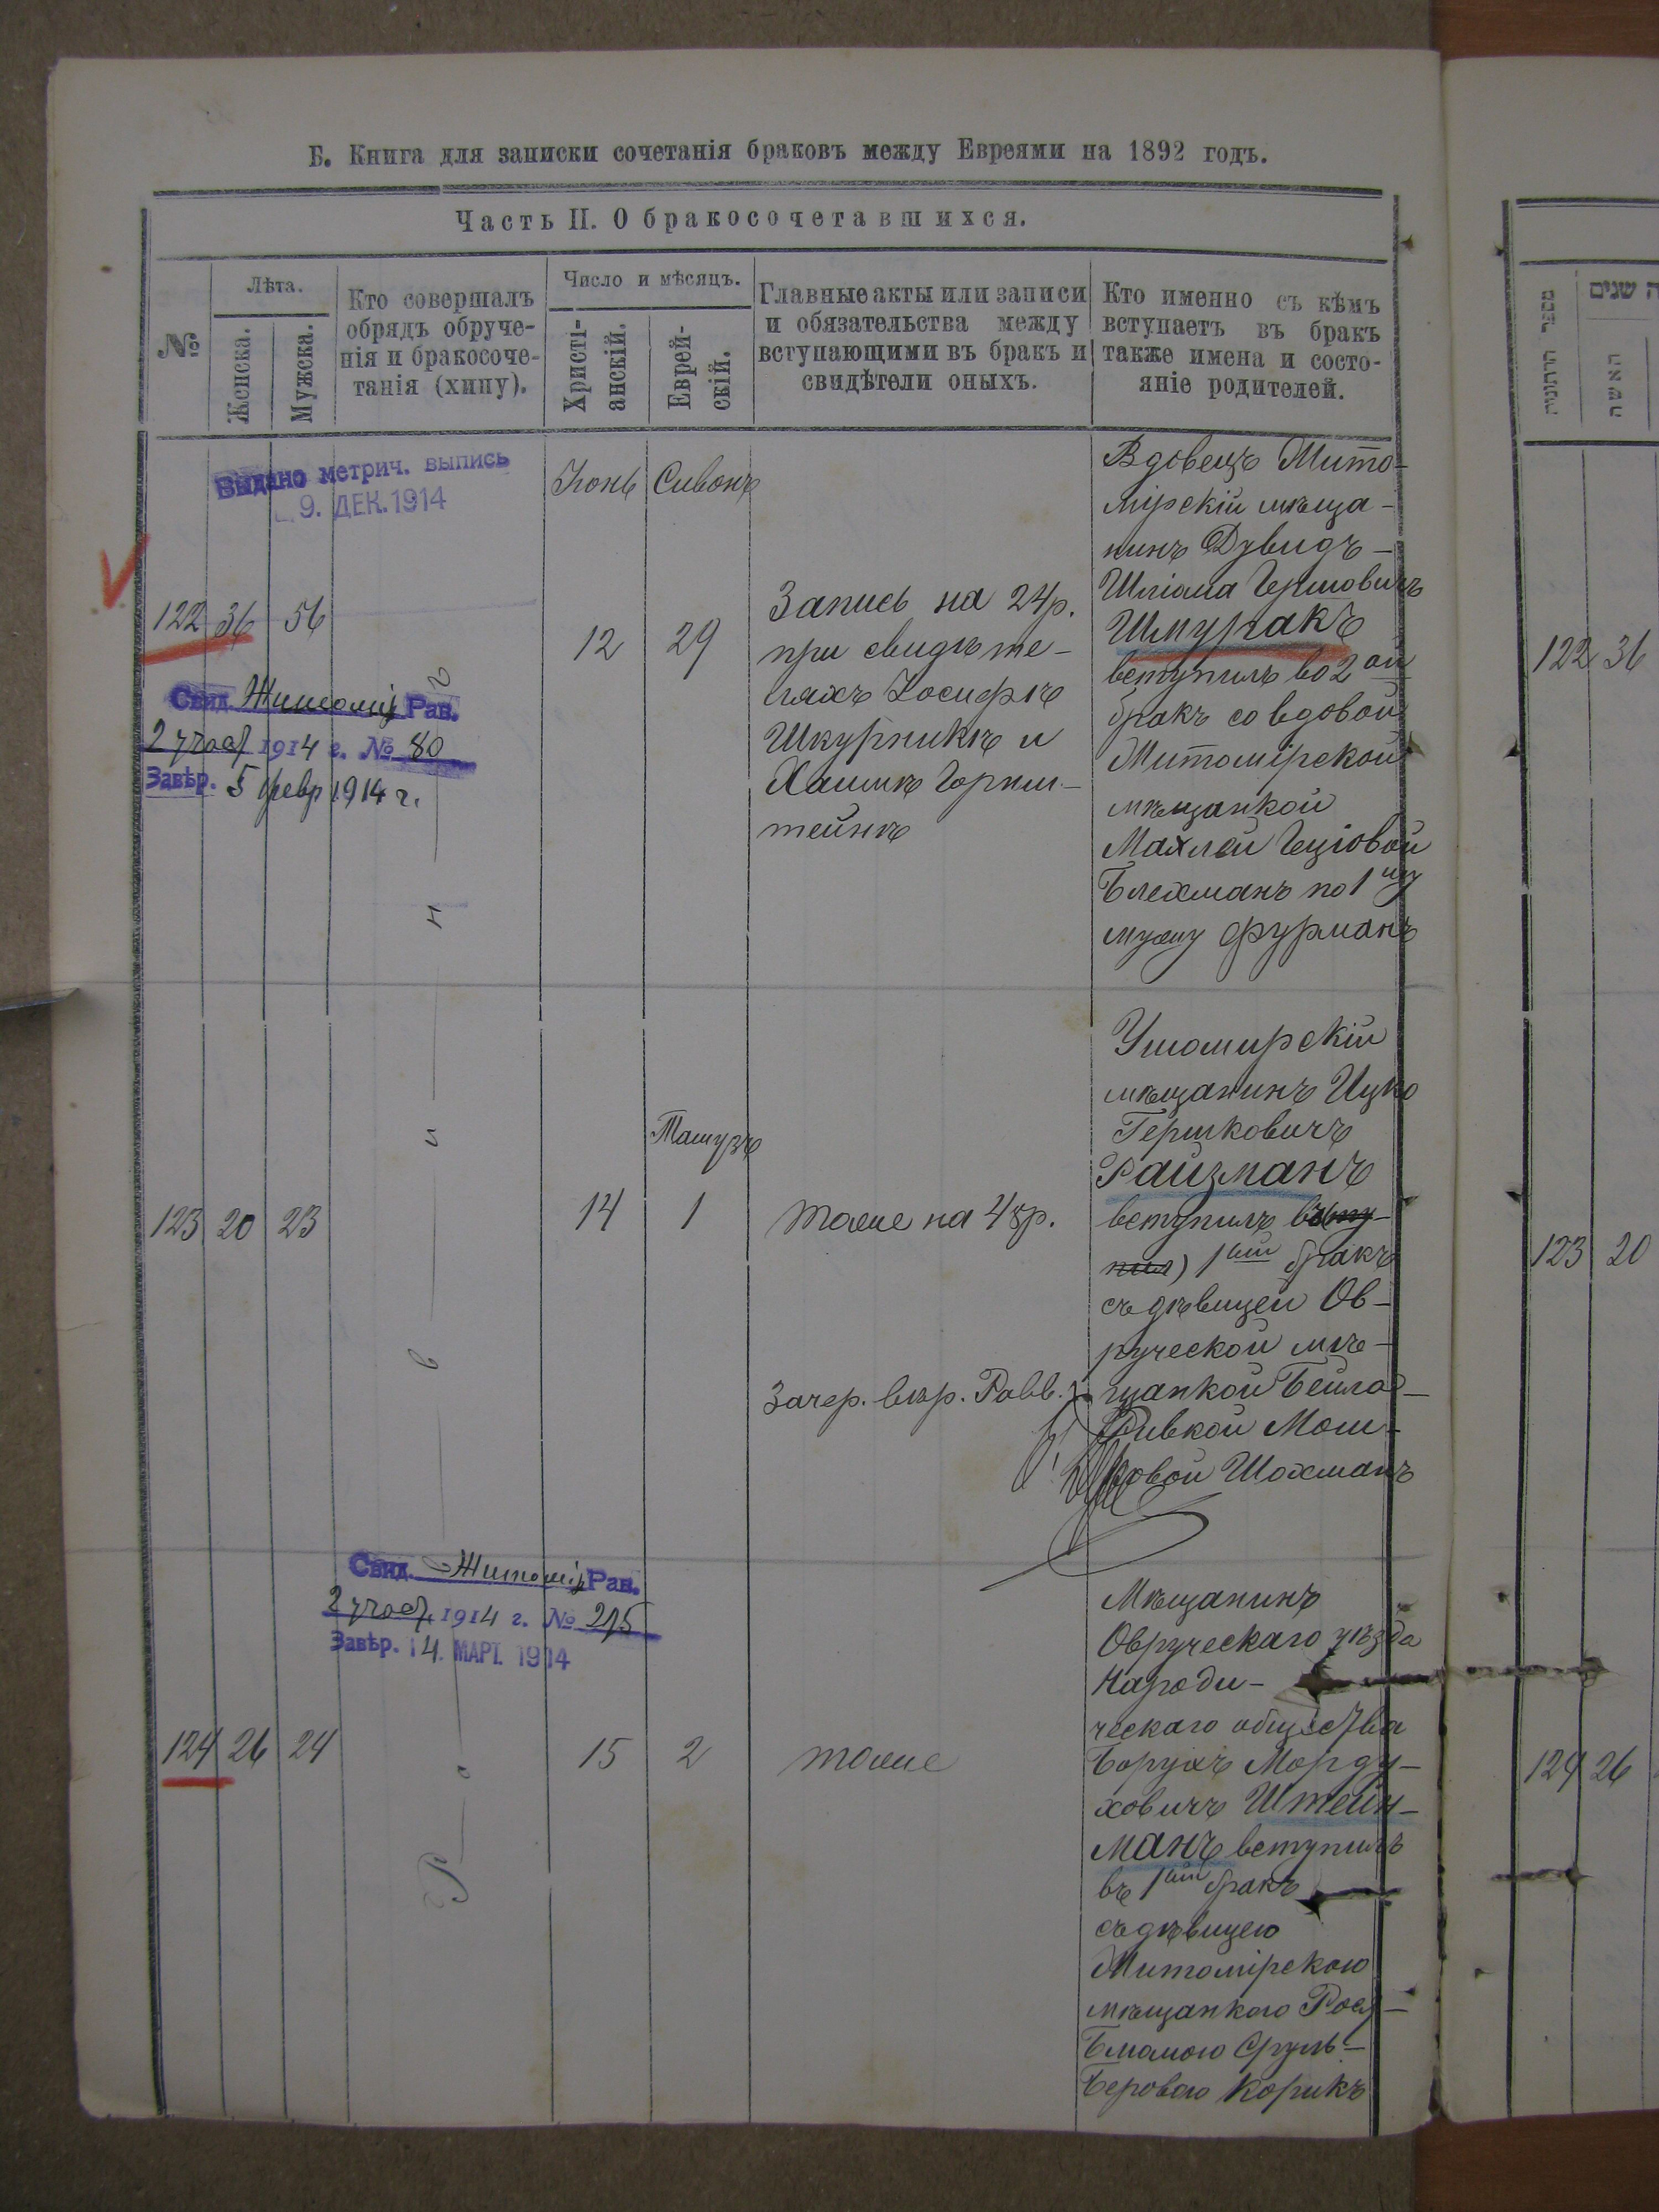 Б. Книга для записки сочетанія браковъ между Евреями на 1892 годъ.
Часть II. О бракосочетавшихся.
№
Лѣта.
Женска.
Мужска.
Кто совершалъ
обрядъ обруче-
нія и бракосоче-
танія (хипу).
Число и мѣсяцъ.
Христі-
анскій.
Еврей-
скій.
Главные акты или записи
и обязательства между
вступающими въ бракъ и
свидѣтели оныхъ.
Кто именно съ кѣмъ
вступаетъ въ бракъ
также имена и состо-
яніе родителей.
Выдано метрич. выпись
9. ДЕК. 1914
Іюнь
Сивонъ
122
36
56
12
29
Запись на 24р.
при свидѣте-
ляхъ Іосифѣ
Шкурникѣ и
Хаимѣ Горнш-
тейнѣ
Вдовецъ Жито-
мірскій мѣща-
нинъ Дувидъ-
Шліома Гершовичъ
Шмуракъ
вступилъ во 2ой
бракъ со вдовой
Житомірской
мѣщанкой
Махлей Геціовой
Блехманъ по 1му
мужу Фурманъ
Свид. Житомір Рав.
2 участ 1914 г. № 80
Завѣр. 5 февр 1914 г.
Р а в и н ъ
Тамузъ
123
20
23
14
1
тоже на 48р.
Зачер. вѣр. Равв.
Ушомирскій
мѣщанинъ Ицко
Гершковичъ
Райзманъ
вступилъ въ
1ый бракъ
съ дѣвицей Ов-
ручской мѣ-
щанкой Бейла-
Ривкой Мош-
ковой Шохманъ
Свид. Житомір Рав.
2 участ. 1914 г. № 215
Завѣр. 14. МАРТ. 1914
124
26
24
15
2
тоже
Мѣщанинъ
Овручскаго уѣзда
Народи-
ческаго общества
Борухъ Морду-
ховичъ Штейн-
манъ вступилъ
въ 1ый бракъ
съ дѣвицею
Житомірскою
мѣщанкою Рося-
Блюмою Сруль-
Беровою Корикъ
מספר החתונה
ה שנים
האשה
122 36
123 20
124 26